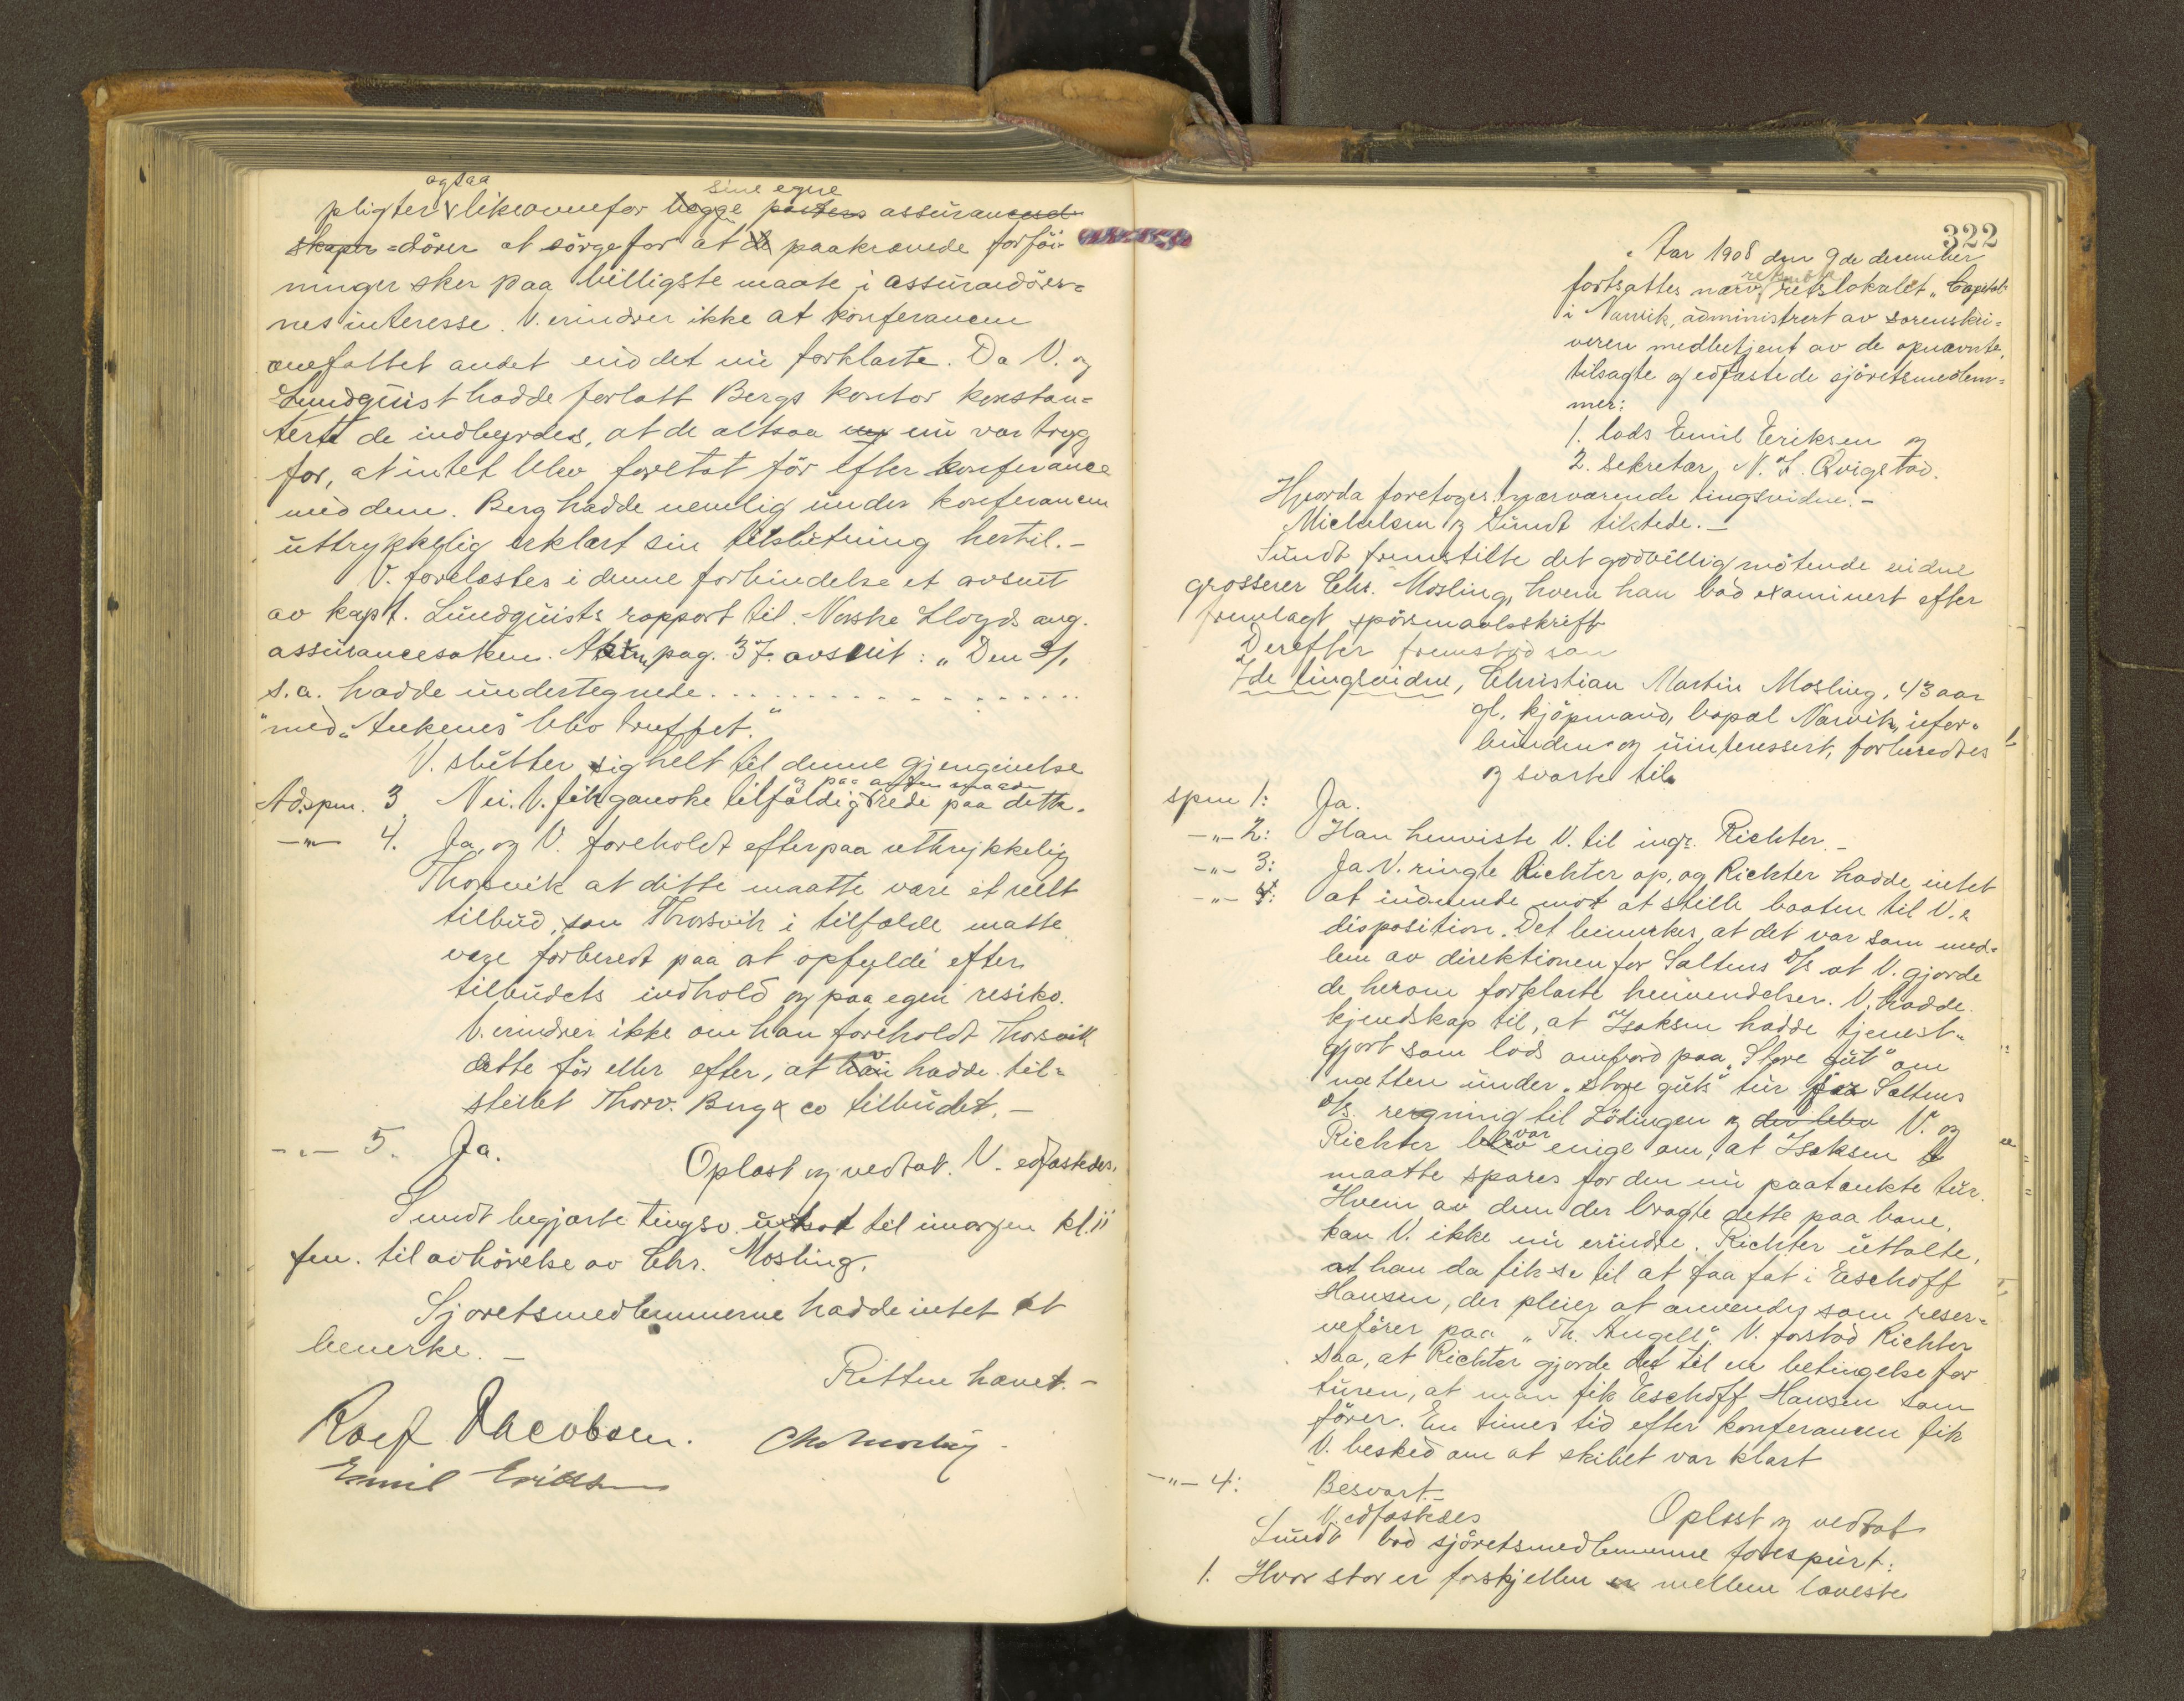 ogsaa
sine egne
pligter likeoverfor begge parters assurancesel-
skaper =dörer at sörge for at de paakrævede forföi-
ninger sker paa billigste maate i assurandöer=
nes interesse. V. erindrer ikke at konferancen
omfattet andet end det nu forklarte. Da V. og
Lundquist hadde forlatt Bergs kontor konstan=
terte de indbyrdes, at de altsaa nu var tryg
for, at intet blev foretat för efter konferance
med dem. Berg hadde nemlig under konferancen
uttrykkelig erklært sin tilslutning hertil.-
V. forelæstes i denne forbindelse et avsnit
av kapt. Lundquists rapport til Norske Lloyds ang.
assurancesaken. pag. 37. avsnit: „Den 3/1
s.a. hadde undertegnede..................
"med „Aukenes" blev truffet."
V. slutter sig helt til denne gjengivelse
og paa anden maade
Ad. spm. 3 Nei. V. fik ganske tilfældig rede paa dette.
-„- 4. Ja, og V. foreholdt efterpaa uttrykkelig
Thorsvik at dette maatte være et reelt
tilbud, som Thorsvik i tilfælde matte
være forberedt paa at opfylde efter
tilbudets indhold og paa egen resiko.
V. erindrer ikke om han foreholdt Thorsvik
dette för eller efter, at han hadde til=
stillet Thorv. Berg & co tilbudet.-
-„- 5. Ja.
Oplæst og vedtat. V. edfæstedes.
Sundt begjærte tingsv. utsat til imorgen kl. 11
fm. til avhörelse av Chr. Mosling.
Sjöretsmedlemmerne hadde intet at
bemerke.-
Retten hævet.-
Roef Jacobsen. Chr Mosling.
Emil Eriksen
322
Aar 1908 den 9de december
fortsattes nærv. retslokalet „Capitol"
i Narvik, administrert av sorenskri=
veren medbetjent av de opnævnte,
tilsagte og edfæstede sjöretsmedlem=
mer:
1. lods Emil Eriksen og
2. sekretær N. J. Qvigstad.
Hvorda foretoges nærværende tingsvidne.-
Michelsen og Sundt tilstede.-
Sundt fremstillte det godvillig mötende vidne
grosserer Chr. Mosling, hvem han bad examinert efter
fremlagt spörsmaalsskrift
Derefter fremstod som
7de tingsvidne, Christian Martin Mosling, 43 aar
gl. kjöpmand, bopæl Narvik, ufor=
bunden og uinteressert, forberedtes
og svarte til
spm 1: Ja.
-„- 2: Han henviste V. til ingr. Richter.-
-„- 3: Ja V. ringte Richter op, og Richter hadde intet
-„- 4: at indvende mot at stille baaten til V.s
disposition. Det bemerkes, at det var som med=
lem av direktionen for Saltens D/S at V. gjorde
de herom forklarte henvendelser. V. hadde
kjendskap til, at Isaksen hadde tjenest=
gjort som lods ombord paa „Store gut" om
natten under „Store guts" tur for Saltens
D/S. regning til Lödingen og den blev V. og
var
Richter blev enige om, at Isaksen
maatte spares for den nu paatænkte tur.
Hvem av dem der bragte dette paa bane,
kan V. ikke nu erindre. Richter uttalte,
at han da fik se til at faa fat i Eschoff
Hansen, der pleier at anvendes som reser=
vefører paa „Th. Angell". V. forstod Richter
saa, at Richter gjorde det til en betingelse for
turen, at man fik Eschoff Hansen som
förer. En times tid efter konferancen fik
V. besked om at skibet var klart
-„- 4: Besvart.-
V. edfæstedes Oplæst og vedtat
Sundt bad sjöretsmedlemmerne forespurt:
1. Hvor stor er forskjellen er mellem laveste